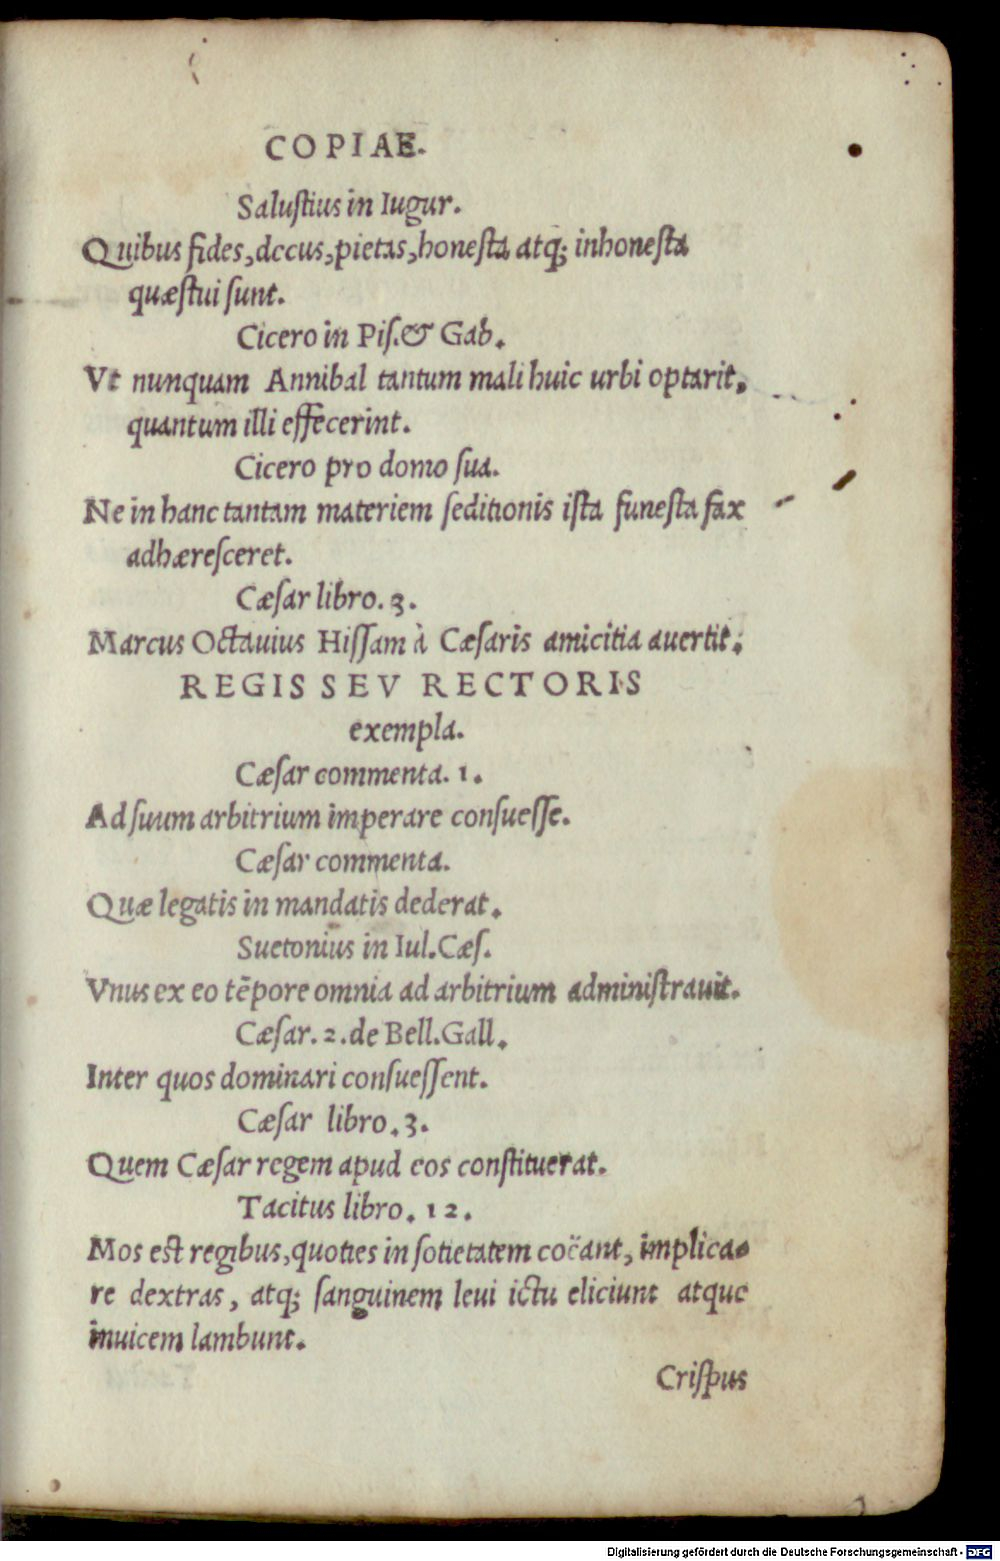 COPIAE.
Saluſtius in Iugur.
Quibus fides, decus, pietas, honeſta atq; inhoneſta
quæſtui ſunt.
Cicero in Piſ. & Gab.
Vt nunquam Annibal tantum mali huic urbi optarit,
quantum illi effecerint.
Cicero pro domo ſua.
Ne in hanc tantam materiem ſeditionis iſta funeſta fax
adhæreſceret.
Cæſar libro. 3.
Marcus Octauius Hiſſam à Cæſaris amicitia auertit.
REGIS SEV RECTORIS
exempla.
Cæſar commenta. 1.
Ad ſuum arbitrium imperare conſueſſe.
Cæſar commenta.
Quæ legatis in mandatis dederat.
Suetonius in Iul. Cæſ.
Vnus ex eo tẽpore omnia ad arbitrium adminiſtrauit.
Cæſar. 2. de Bell. Gall.
Inter quos dominari conſueſſent.
Cæſar libro. 3.
Quem Cæſar regem apud eos conſtituerat.
Tacitus libro. 12.
Mos eſt regibus, quoties in ſotietatem coëant, implica-
re dextras, atq; ſanguinem leui ictu eliciunt atque
inuicem lambunt.
Criſpus
Digitalisierung gefördert durch die Deutsche Forschungsgemeinschaft - DFG